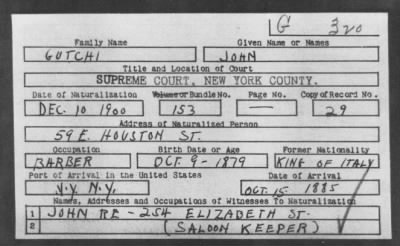 G 320
Family Name Given Name or Names
GUTCHI JOHN
Title and Location of Court
SUPREME COURT, NEW YORK COUNTY.
Date of Naturalization Volume or Bundle No. Page No. Copy of Record No.
DEC. 10 1900 153 — 29
Address of Naturalized Person
59 E. HOUSTON ST.
Occupation Birth Date or Age Former Nationality
BARBER OCT. 9-1879 KING OF ITALY
Port of Arrival in the United States Date of Arrival
N.Y. N.Y. OCT. 15 1885
Names, Addresses and Occupations of Witnesses To Naturalization
1 JOHN RE - 254 ELIZABETH ST.
2 (SALOON KEEPER)